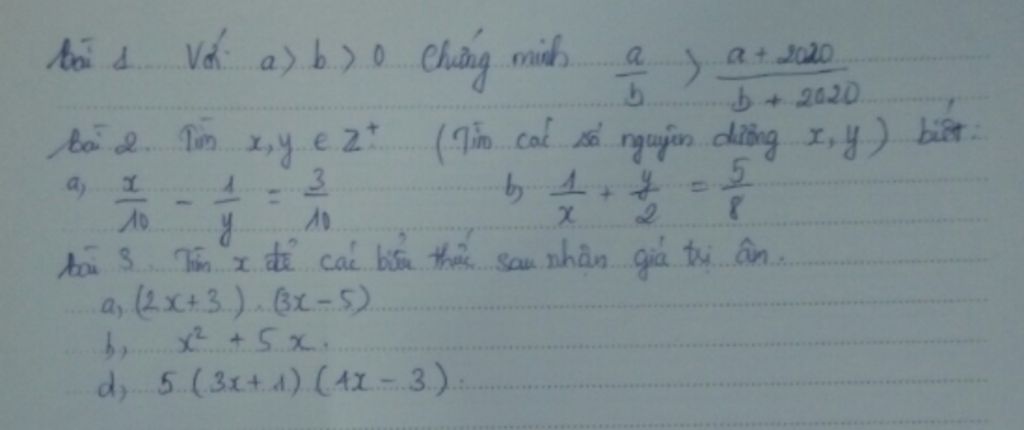 bài 1. Với a > b > 0 Chứng minh a/b > (a + 2020)/(b + 2020)
bài 2. Tìm x, y ∈ Z⁺ (Tìm các số nguyên dương x, y) biết:
a, x/10 - 1/y = 3/10 b, 1/x + y/2 = 5/8
bài 3. Tìm x để các biểu thức sau nhận giá trị âm.
a, (2x+3).(3x-5)
b, x² + 5x.
d, 5(3x+1)(4x-3).